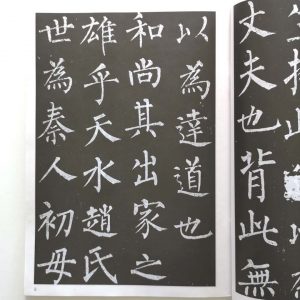 丈夫也背此無
以為達道也
和尚其出家之
雄乎天水趙氏
世為秦人初母